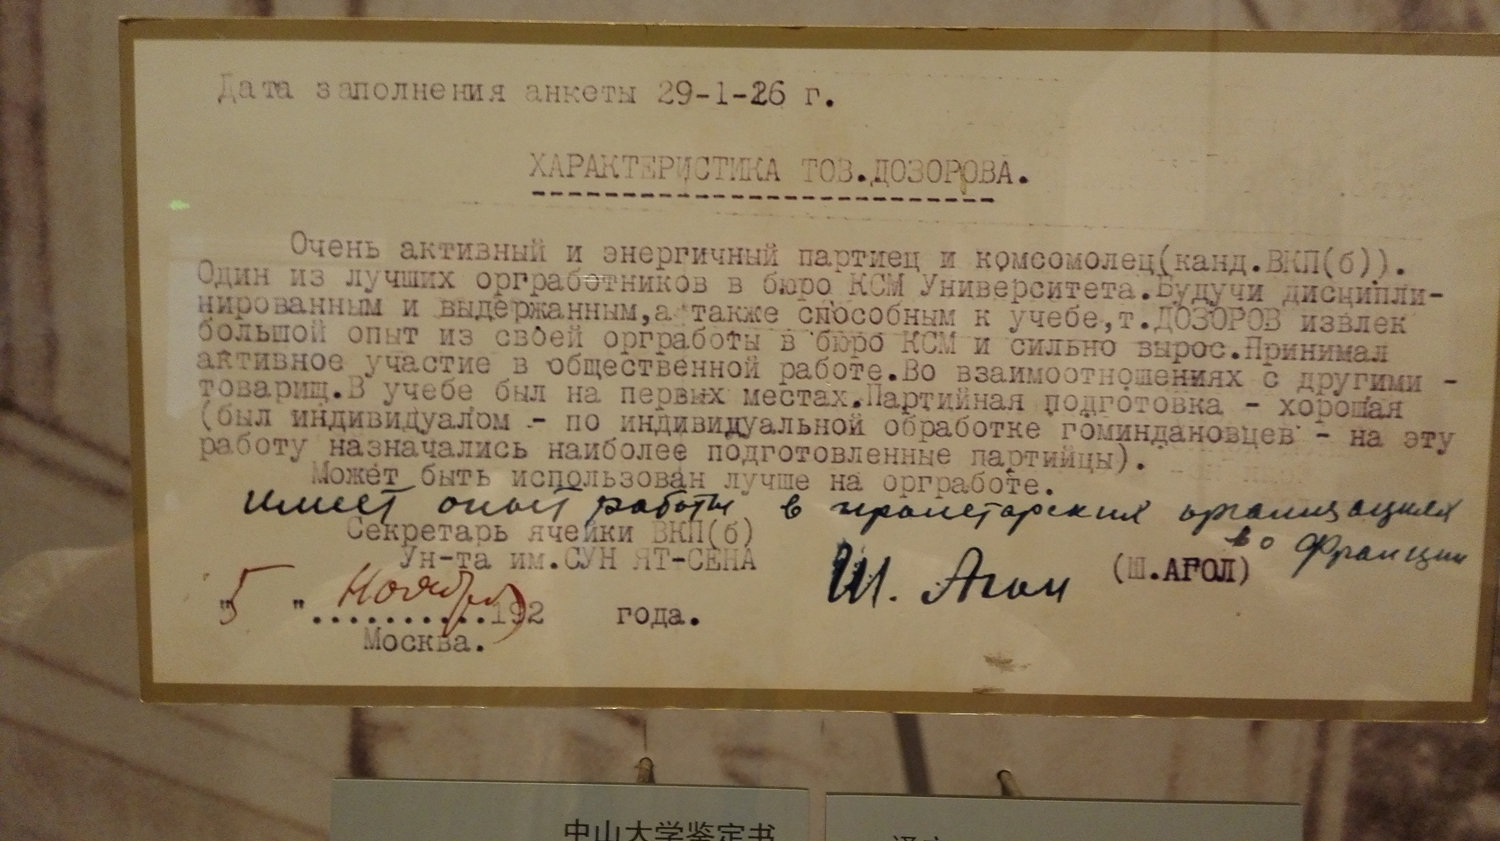 Дата заполнения анкеты 29-1-26 г.
ХАРАКТЕРИСТИКА ТОВ.ДОЗОРОВА.
Очень активный и энергичный партиец и комсомолец(канд.ВКП(б)).
Один из лучших оргработников в бюро КСМ Университета.Будучи дисципли-
нированным и выдержанным,а также способным к учебе,т.ДОЗОРОВ извлек
большой опыт из своей оргработы в бюро КСМ и сильно вырос.Принимал
активное участие в общественной работе.Во взаимоотношениях с другими -
товарищ.В учебе был на первых местах.Партийная подготовка - хорошая
(был индивидуалом - по индивидуальной обработке гоминдановцев - на эту
работу назначались наиболее подготовленные партийцы).
Может быть использован лучше на оргработе.
имеет опыт работы в пролетарских организациях
во Франции
Секретарь ячейки ВКП(б)
Ун-та им.СУН ЯТ-СЕНА
Ш. Агол (Ш.АГОЛ)
"5" Ноября..........192 года.
Москва.
中山大学鉴定书